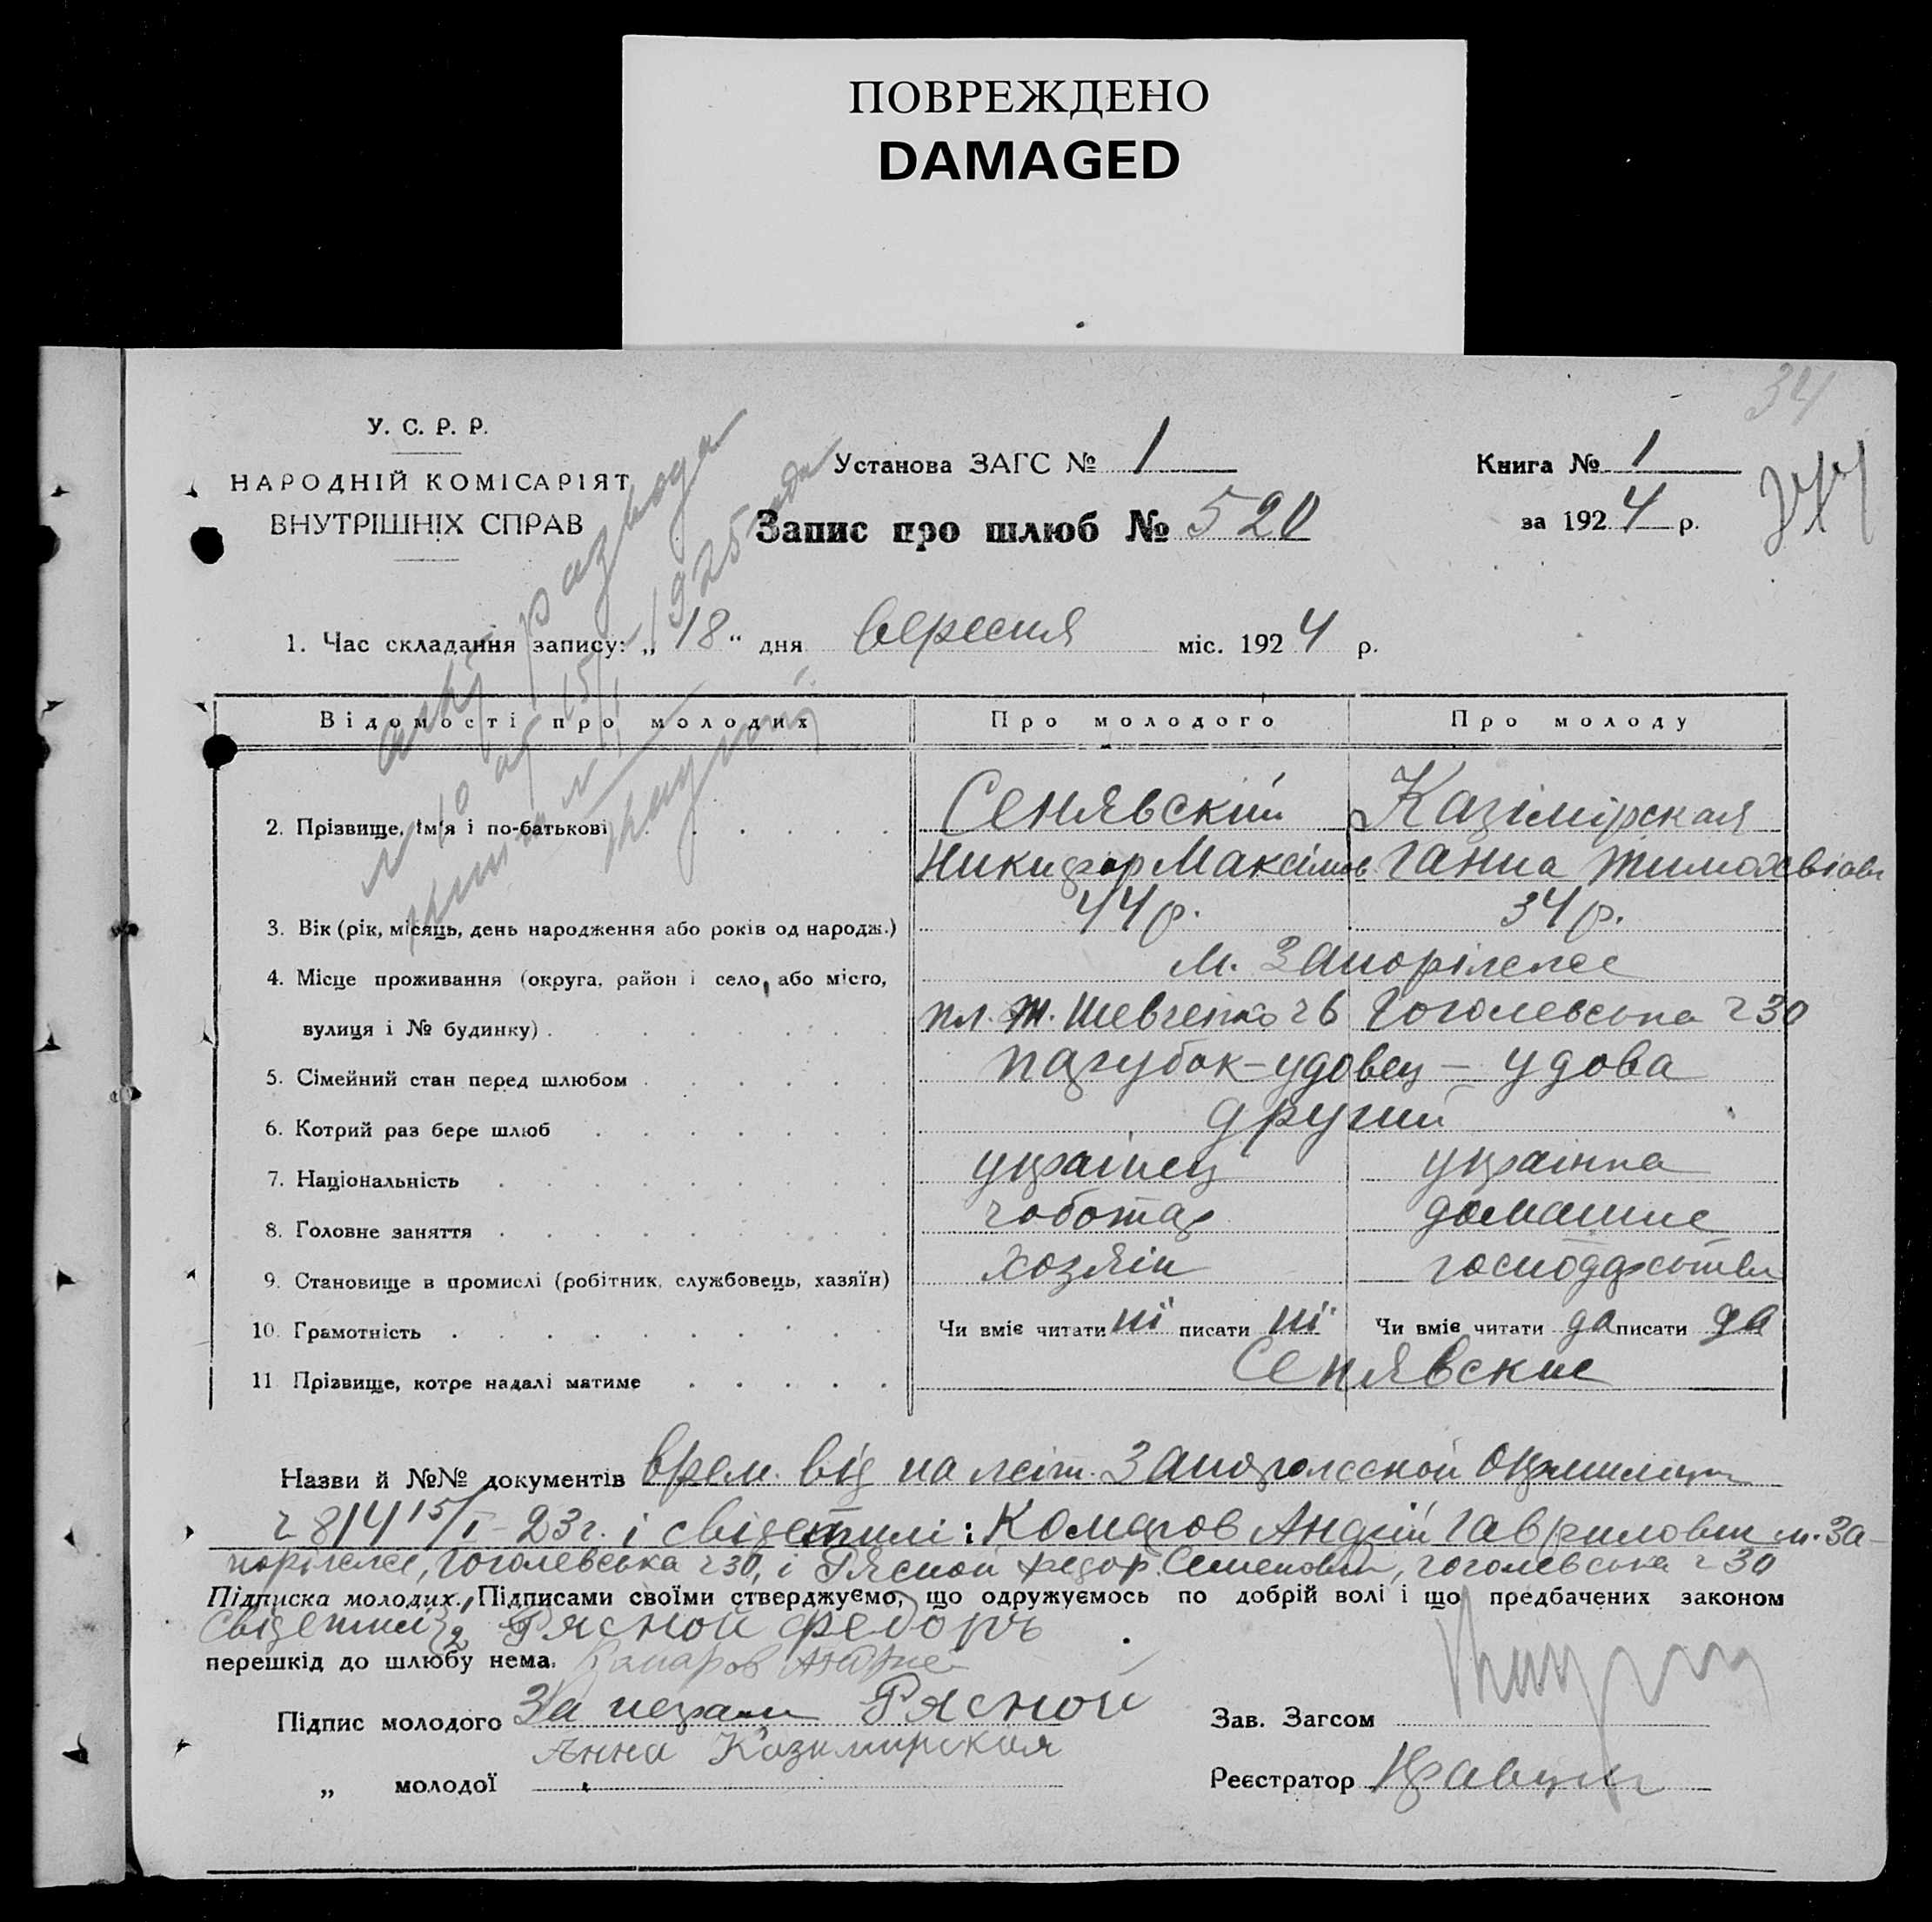 ПОВРЕЖДЕНО
DAMAGED
34
У. С. Р. Р.
НАРОДНІЙ КОМІСАРІЯТ
ВНУТРІШНІХ СПРАВ
Установа ЗАГС № 1
Книга № 1
за 1924 р.
Запис про шлюб № 520
акт развода
№ 10 от 15/I 1925 года
1. Час складання запису: „18" дня вересня міс. 1924 р.
Відомості про молодих Про молодого Про молоду
2. Прізвище, ім'я і по-батькові Сенявскій Казімірская
Никифор Максімов Ганна Тимофєвіовн
3. Вік (рік, місяць, день народження або років од народж.) 44 р. 34 р.
4. Місце проживання (округа, район і село, або місто, м. Запоріжжє
вулиця і № будинку) пл. Т. Шевченко ч 6 Гоголевська ч 30
5. Сімейний стан перед шлюбом парубок-удовец — удова
6. Котрий раз бере шлюб другий
7. Національність українец українка
8. Головне заняття чоботар домашнє
9. Становище в промислі (робітник, службовець, хазяїн) хозяін господарство
10. Грамотність Чи вміє читати ні писати ні Чи вміє читати да писати да
11 Прізвище, котре надалі матиме Сенявские
Назви й №№ документів врем. від на жит. Запорожской
ч 814 15/I-23 г. і свідетилі: Комаров Андрій Гаврилович м. За-
поріжжє, Гоголевська ч 30, і Рясной Федор Семенович, Гоголевська ч 30
Підписка молодих. Підписами своїми стверджуємо, що одружуємось по добрій волі і що предбачених законом
Свідетилі 2 Рясной Федоръ
перешкід до шлюбу нема. Комаров Андрие
Підпис молодого За неграм Рясной
Зав. Загсом
Анна Казимирская
„ молодої
Реєстратор Кравцов